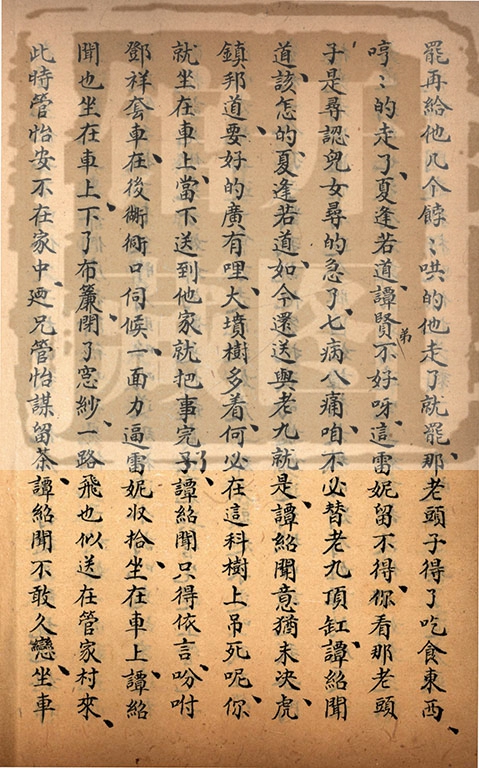 罷再給他几个餑〻哄的他走了就罷那老頭子得了吃食東西
哼〻的走了夏逢若道譚賢弟不好呀這雷妮留不得你看那老頭
子是尋認兒女尋的急了七病八痛咱不必替老九頂缸譚紹聞
道該怎的夏逢若道如今還送與老九就是譚紹聞意猶未决虎
鎮邦道要好的廣有哩大墳樹多着何必在這科樹上吊死呢你
就坐在車上當下送到他家就把事完了譚紹聞只得依言吩咐
鄧祥套車在後衚衕口伺候一面力逼雷妮収拾坐在車上譚紹
聞也坐在車上下了布簾閉了窓紗一路飛也似送在管家村來
此時管怡安不在家中廼兄管怡謀留茶譚紹聞不敢久戀坐車